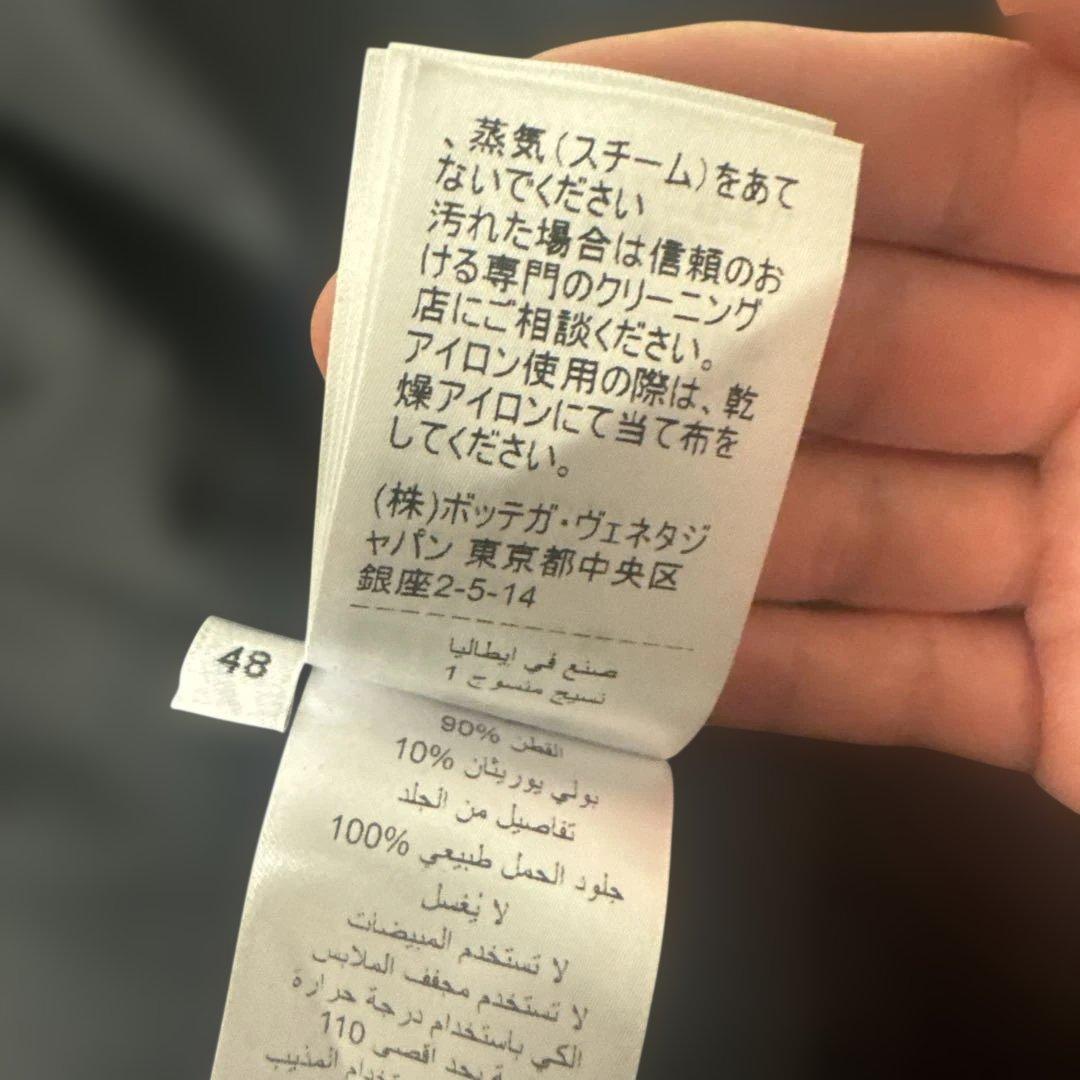 、蒸気(スチーム)をあて
ないでください
汚れた場合は信頼のお
ける専門のクリーニング
店にご相談ください。
アイロン使用の際は、乾
燥アイロンにて当て布を
してください。
(株)ボッテガ・ヴェネタジ
ャパン 東京都中央区
銀座2-5-14
صنع في ايطاليا
نسيج منسوج 1
48
القطن %90
بولي يوريثان %10
تفاصيل من الجلد
جلود الحمل طبيعي %100
لا يُغسل
لا تستخدم المبيضات
لا تستخدم مجفف الملابس
الكي باستخدام درجة حرارة
بحد اقصى 110
المذيب